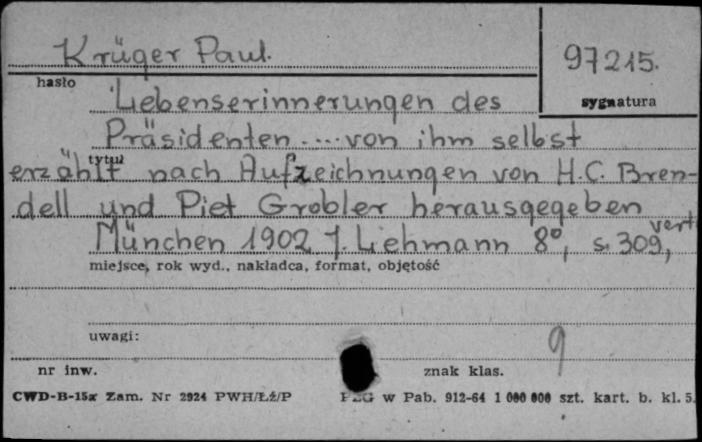 Krüger Paul.
97215.
hasło
sygnatura
Lebenserinnerungen des
Präsidenten .... von ihm selbst
tytuł
erzählt nach Aufzeichnungen von H.C. Bren-
dell und Piet Grobler herausgegeben
München 1902 J. Lehmann 8°, s. 309,
miejsce, rok wyd., nakładca, format, objętość
uwagi:
9
nr inw.
znak klas.
CWD-B-15a Zam. Nr 2924 PWH/Łź/P
w Pab. 912-64 1 000 000 szt. kart. b. kl. 5.